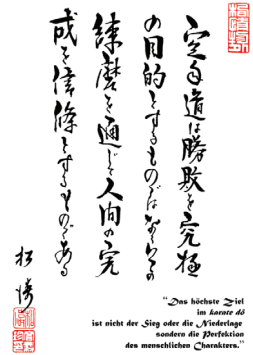 空手道は勝敗を究極
の目的とするものではなく心の
練磨を通じて人間の完
成を信條とするものである
松濤
“Das höchste Ziel
im karate dô
ist nicht der Sieg oder die Niederlage
sondern die Perfektion
des menschlichen Charakters.”